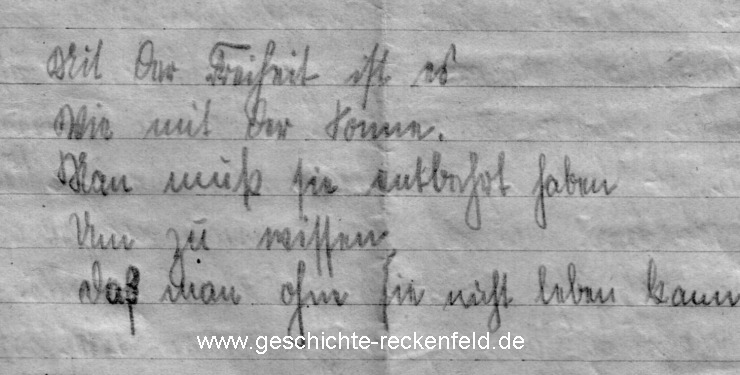 Mit der Freiheit ist es
Wie mit der Sonne.
Man muß sie entbehrt haben
Um zu wissen
daß man ohne sie nicht leben kann
www.geschichte-reckenfeld.de